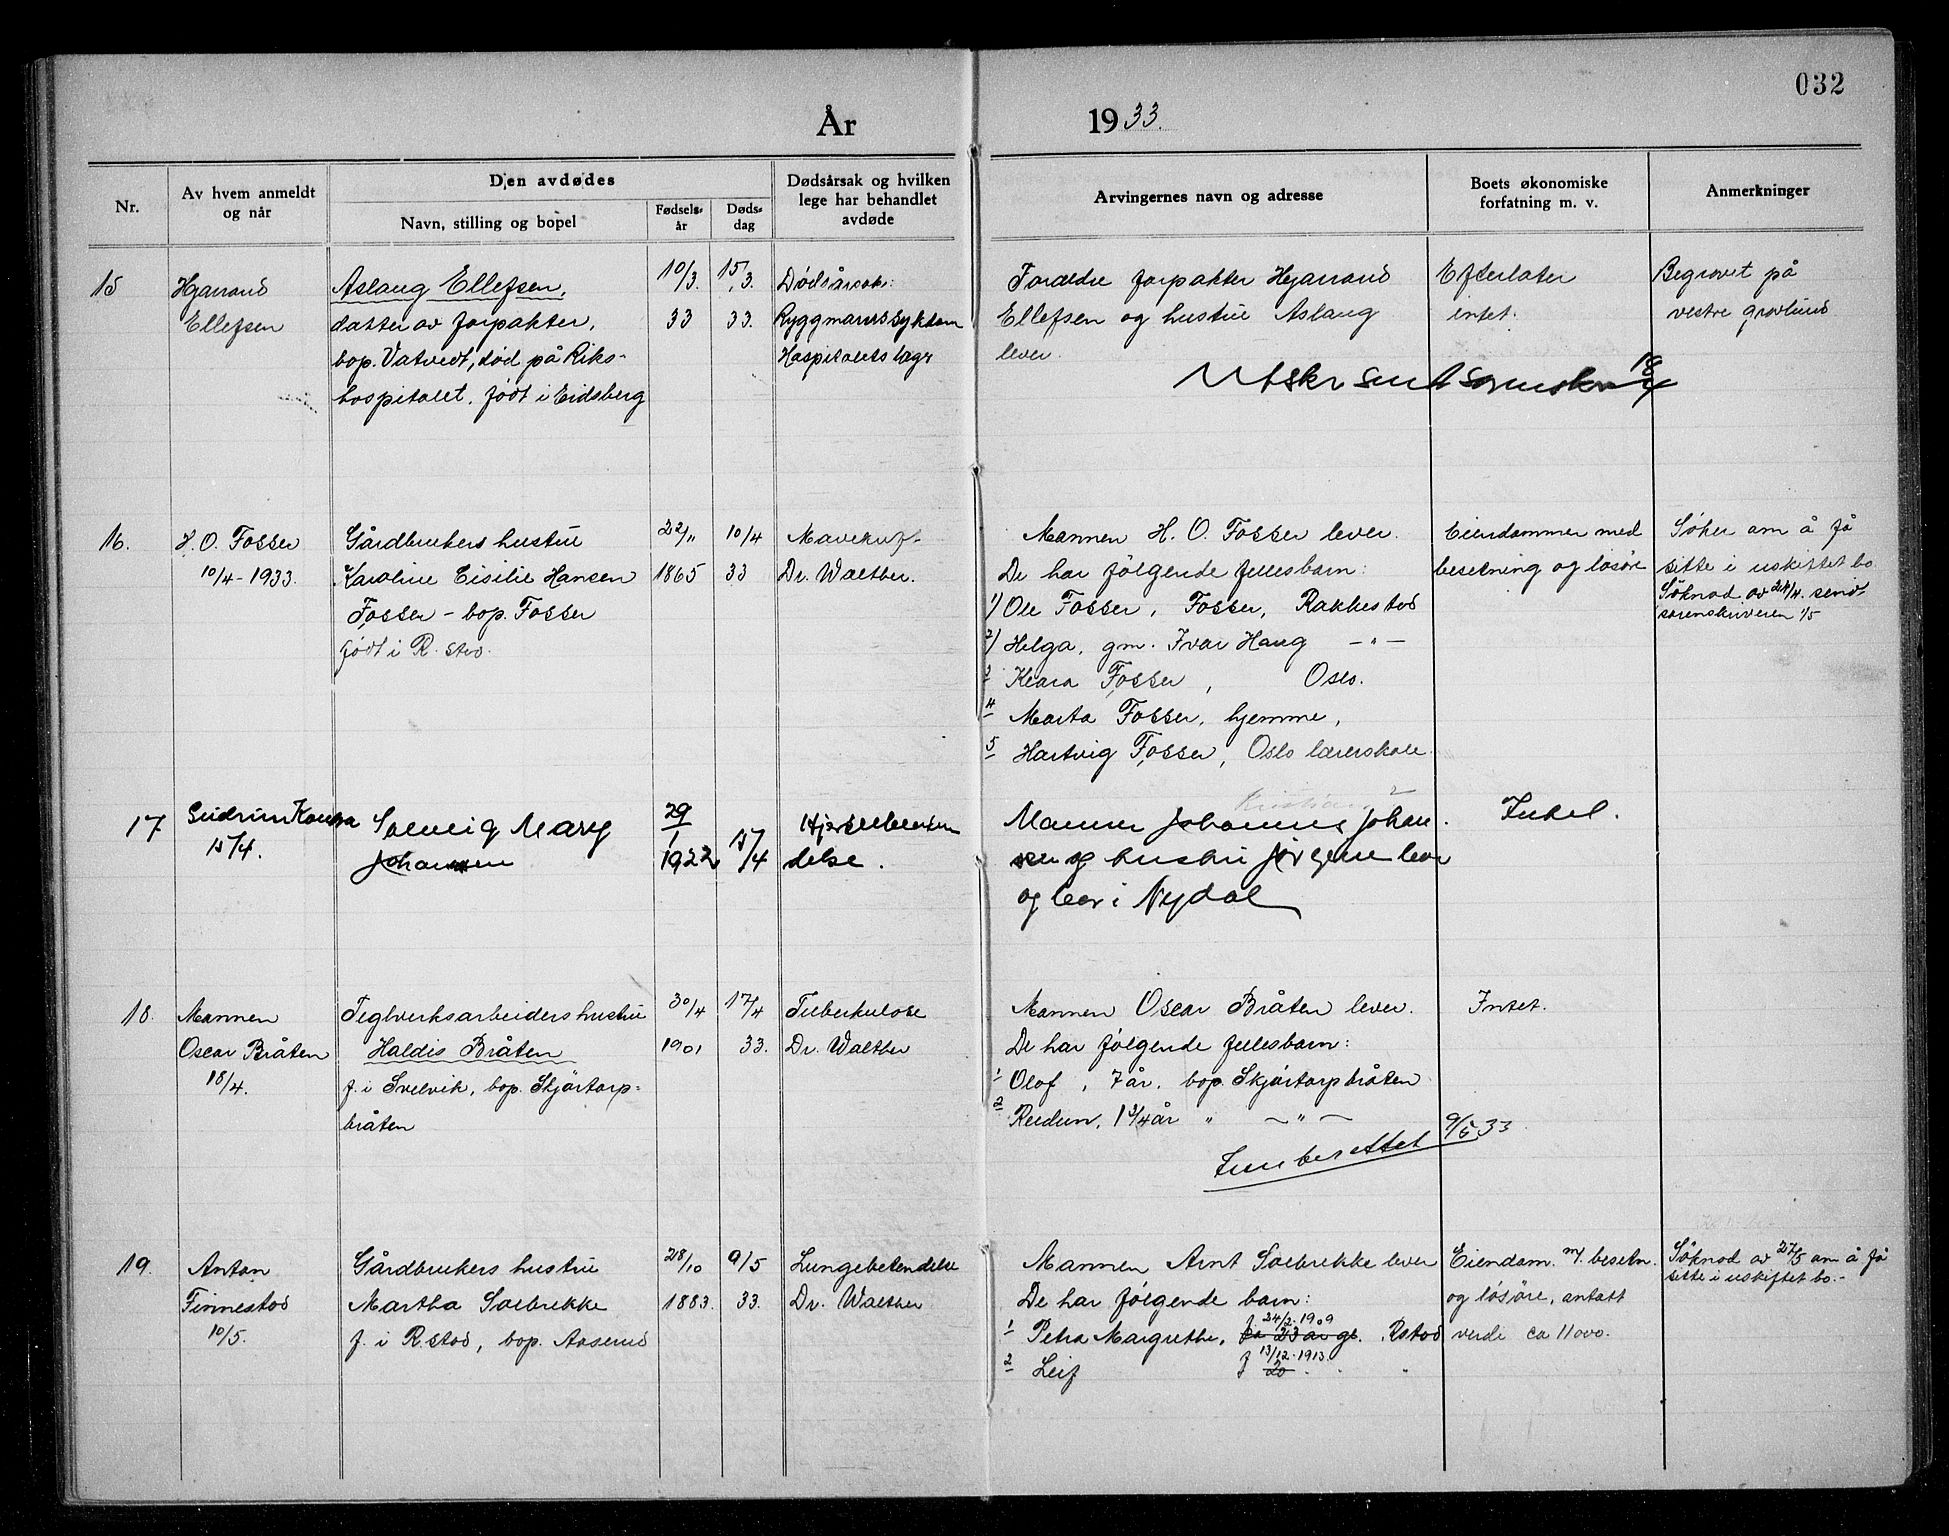 032
År 1933.
Nr.
Av hvem anmeldt
og når
Den avdødes
Navn, stilling og bopel
Fødsels-
år
Døds-
dag
Dødsårsak og hvilken
lege har behandlet
avdøde
Arvingernes navn og adresse
Boets økonomiske
forfatning m. v.
Anmerkninger
15
Hjarrand
Ellefsen
Aslaug Ellefsen,
datter av forpakter,
bop. Vatvedt, død på Riks-
hospitalet, født i Eidsberg
10/3
33
15/3.
33.
Dødsårsak:
Ryggmarvssykdom
Hospitalets læge
Foreldre forpakter Hjarrand
Ellefsen og hustru Aslaug
lever.
Utskr sendt sorenskr 18/4
Efterlater
intet.
Begravet på
vestre gravlund
16.
H. O. Fosser
10/4 - 1933.
Gårdbrukers hustru
Karoline Cisilie Hansen
Fosser - bop. Fosser
født i R. stad.
22/11
1865
10/4
33
Mavekreft
Dr. Walther.
Mannen H. O. Fosser lever.
De har følgende fellesbarn:
1) Ole Fosser, Fosser, Rakkestad
2) Helga, gm. Ivar Haug - " -
3 Klara Fosser, Oslo.
4 Marta Fosser, hjemme,
5 Hartvig Fosser, Oslo lærerskole.
Eiendommer med
besetning og løsøre
Søker om å få
sitte i uskiftet bo
Søknad av 24/4. sendt
sorenskriveren 1/5
17
Gudrun
15/4.
Solveig Mary
Johansen
29
1
1922
15/4
Hjertebeten
delse.
Johannes Johan
sen og hustru Jørgine lever
og bor i Nydal
18.
Mannen
Oscar Bråten
18/4.
Teglverksarbeiders hustru
Haldis Bråten
f. i Svelvik, bop. Skjørtorp-
bråten
30/4
1901
17/4
33.
Tuberkulose
Dr. Walther
Mannen Oscar Bråten lever.
De har følgende fellesbarn:
1 Olaf, 7 år. bop. Skjørtorpbråten
2 Reidun, 1 3/4 år " - " -
Innberettet 9/5 33
Intet.
19.
Anton
Finnestad
10/5.
Gårdbrukers hustru
Martha Solbrekke
f. i R. stad, bop. Aaserud
28/10
1883.
9/5
33.
Lungebetendelse
Dr. Walther
Mannen Arnt Solbrekke lever
De har følgende barn:
f 24/2 - 1909
1 Petra Margrethe, ca 23 år gl. Rstad
f 13/12 - 1913.
2 Leif 20 . "
Eiendom m/. besetn.
og løsøre, antatt
verdi ca 11000.
Søknad av 27/5 om å få
sitte i uskiftet bo.-